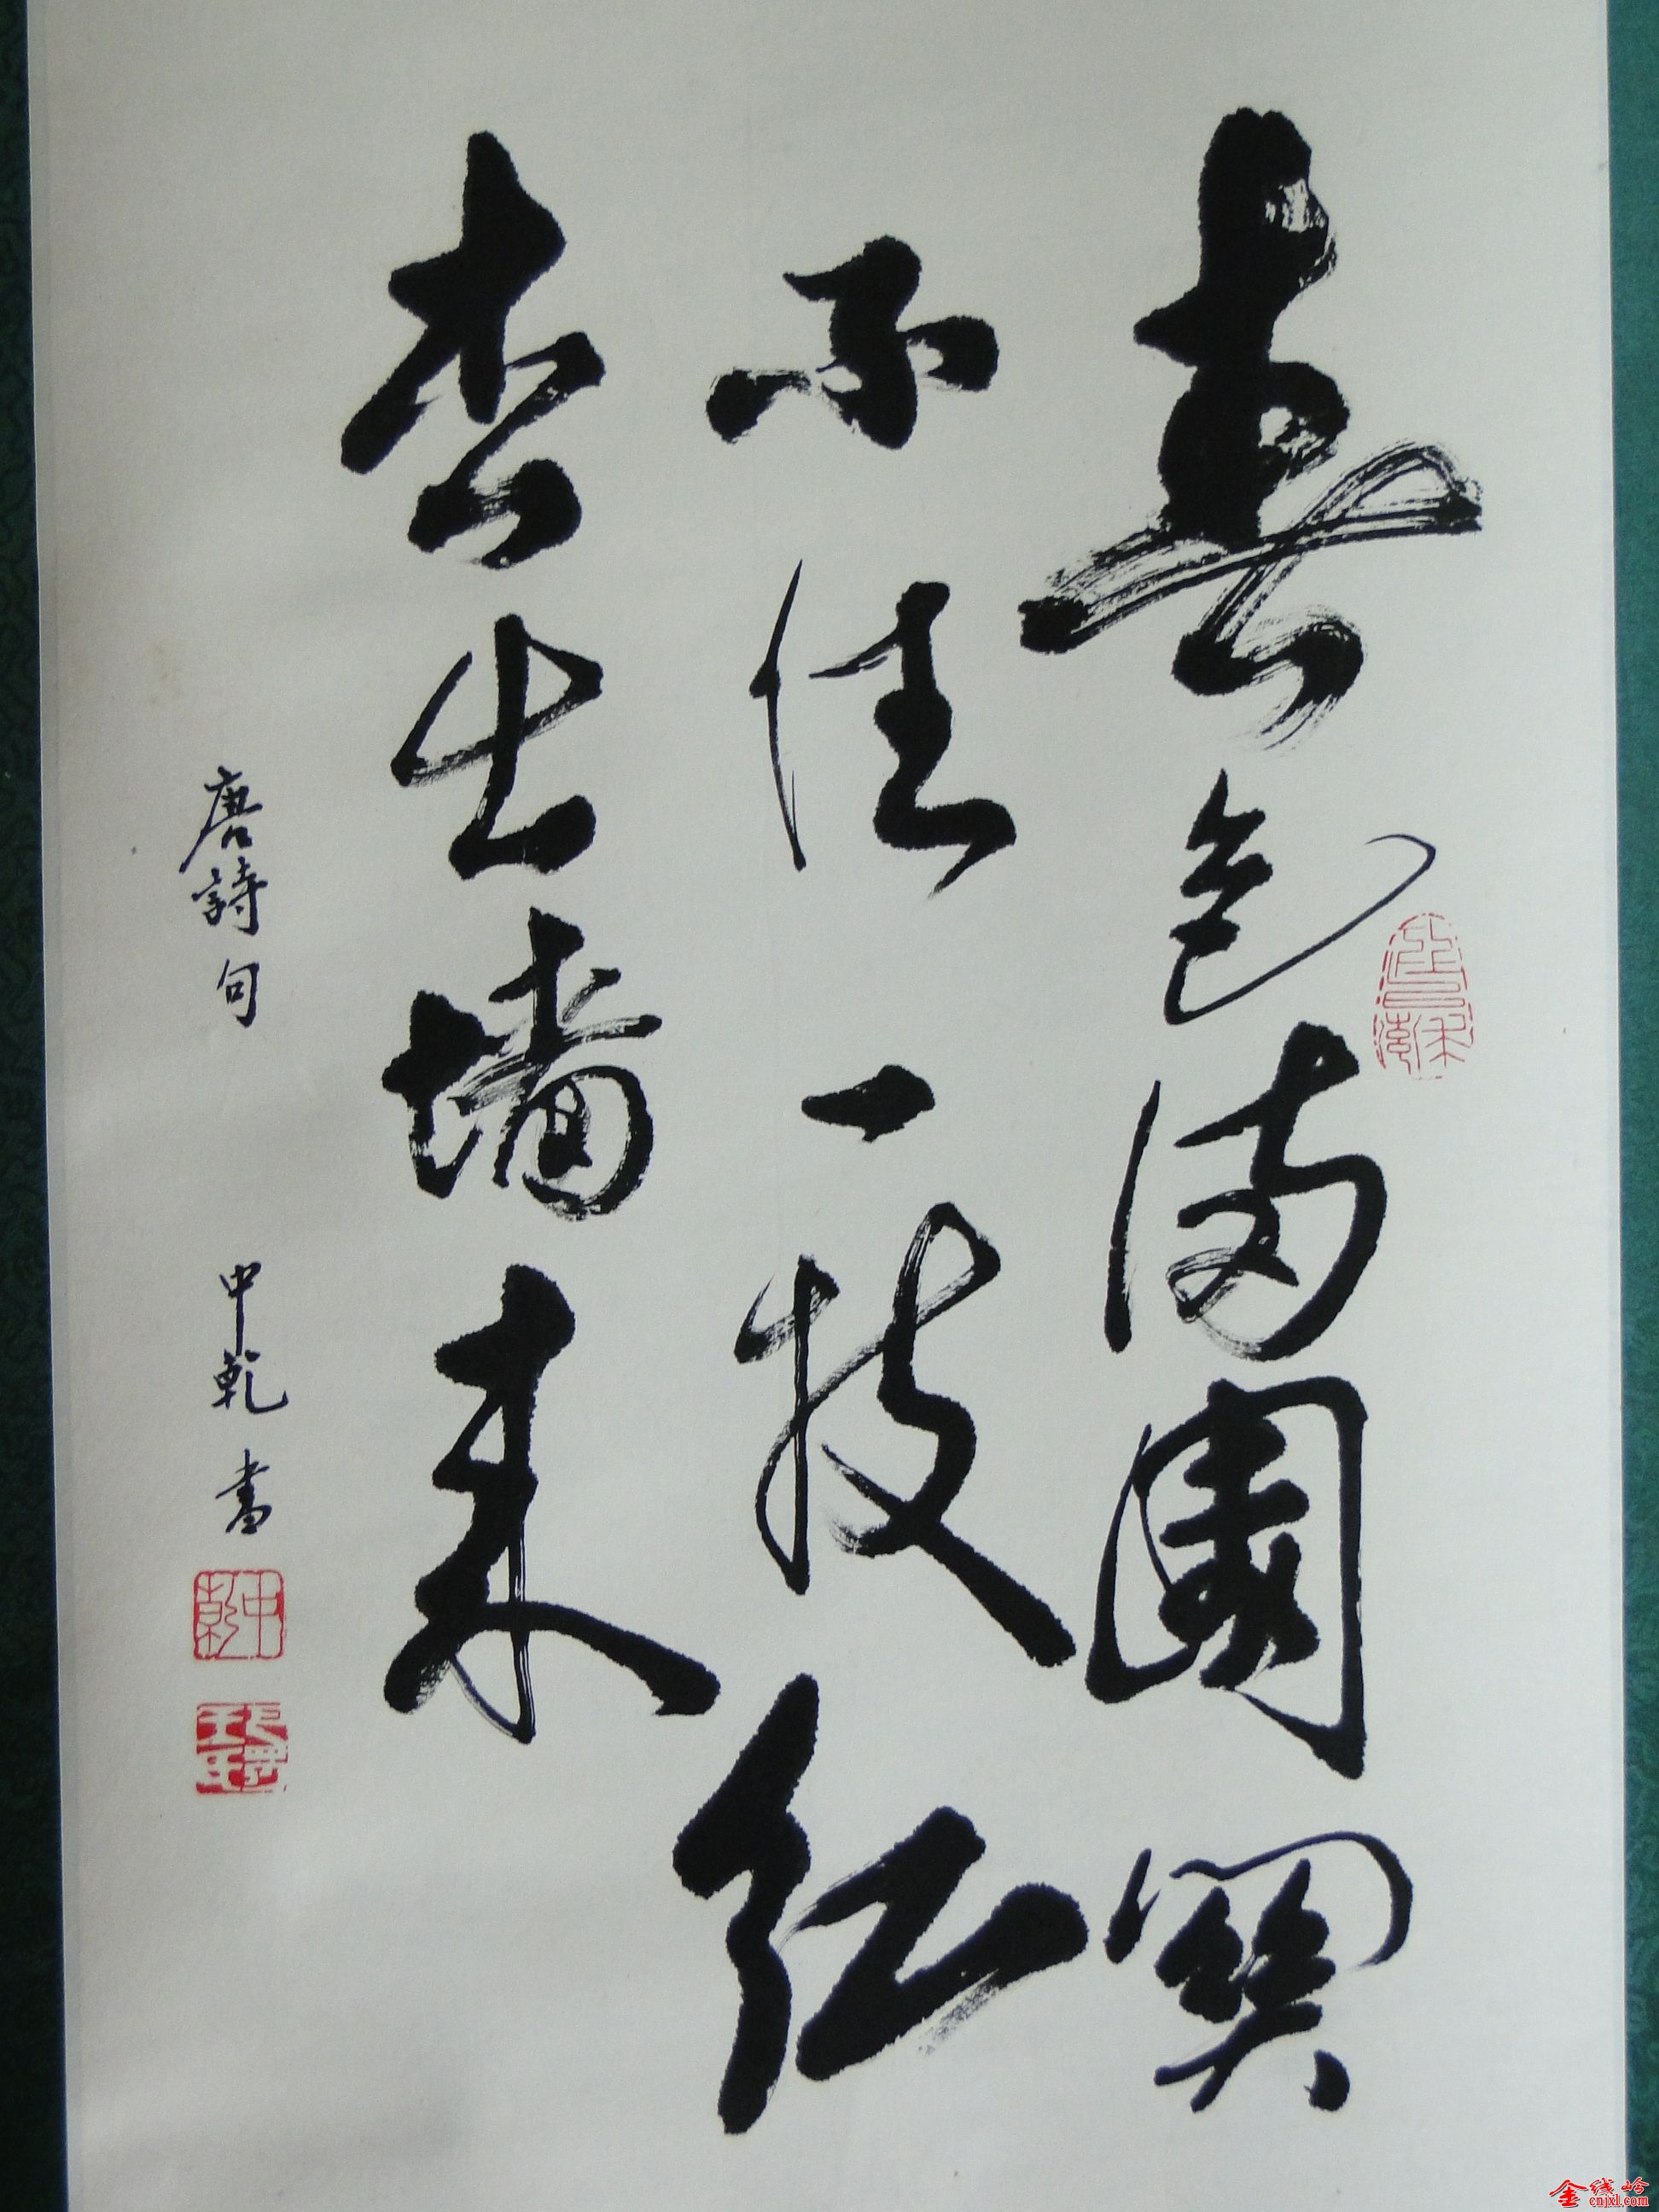 春色满園關
不住一枝红
杏出墙来
唐詩句 中乾書
中乾
金线岭
cnjxl.com